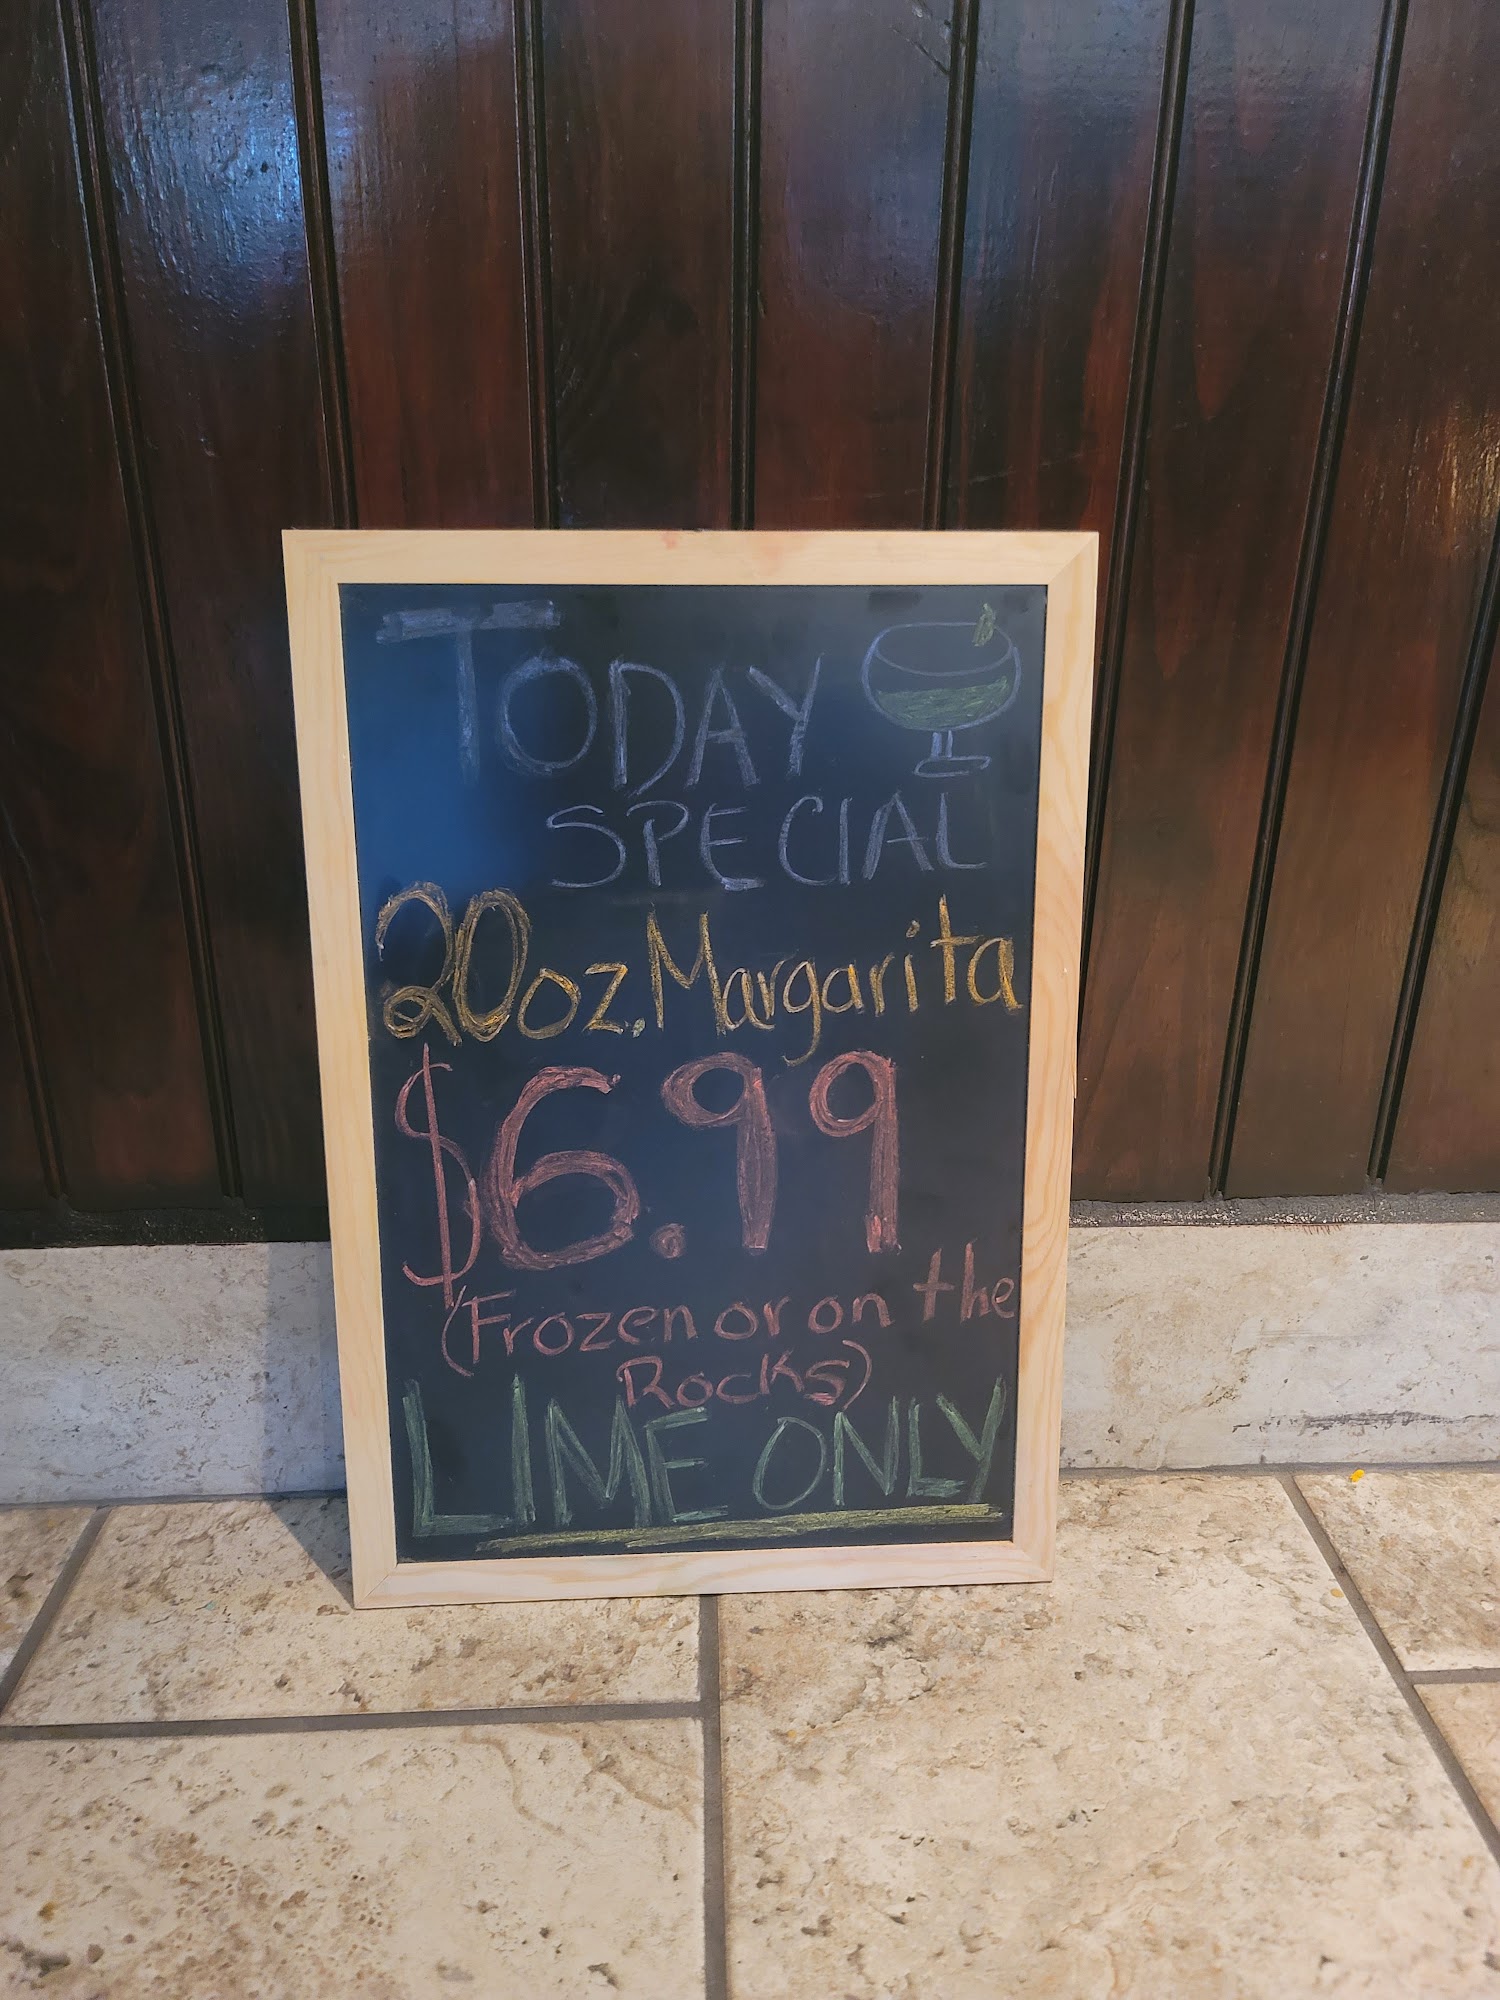 TODAY
SPECIAL
20oz. Margarita
$6.99
(Frozen or on the
Rocks)
LIME ONLY